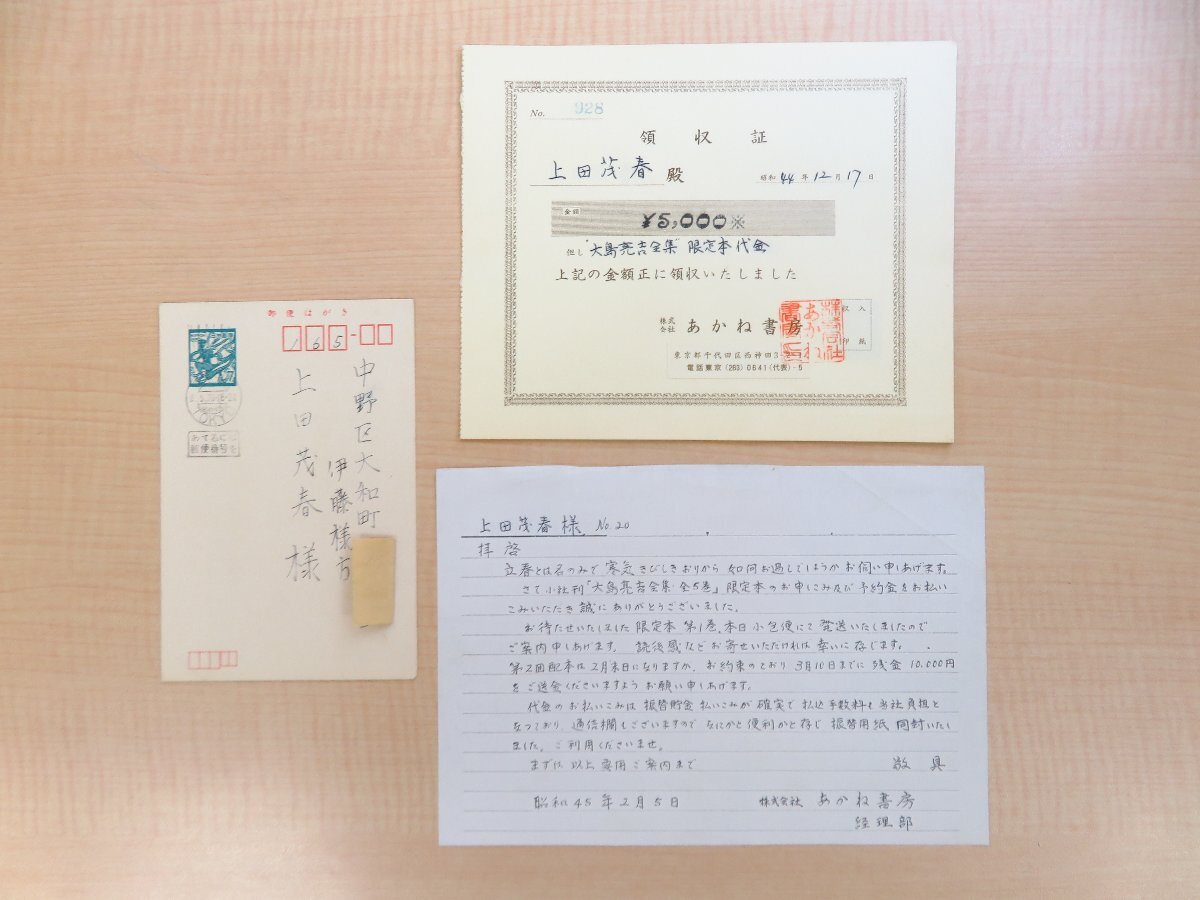 No. 928
領収証
上田茂春殿
昭和44年12月17日
金額
¥5,000※
但し"大島亮吉全集"限定本代金
上記の金額正に領収いたしました
株式会社 あかね書房
株式会社あかね書房
収入印紙
東京都千代田区西神田3-
電話東京(263)0641(代表)-5
郵便はがき
165-
中野区大和町
伊藤様方
上田茂春様
あて名に
郵便番号を
上田茂春様 No 20
拝啓
立春とは名のみで寒気きびしきおりから如何お過しでしょうかお伺い申しあげます。
さて小社刊「大島亮吉全集 全5巻」限定本のお申しこみ及び予約金をお払い
こみいただき誠にありがとうございました。
お待たせいたしました限定本第1巻、本日小包便にて発送いたしましたので
ご案内申しあげます。読後感などお寄せいただければ幸いに存じます。
第2回配本は2月末日になりますが、お約束のとおり3月10日までに残金10,000円
をご送金くださいますようお願い申しあげます。
代金のお払いこみは振替貯金払いこみが確実で払込手数料も当社負担と
なっており、通信欄もございますのでなにかと便利かと存じ振替用紙同封いたし
ました。ご利用くださいませ。
まずは以上専用ご案内まで
敬具
昭和45年2月5日
株式会社 あかね書房
経理部